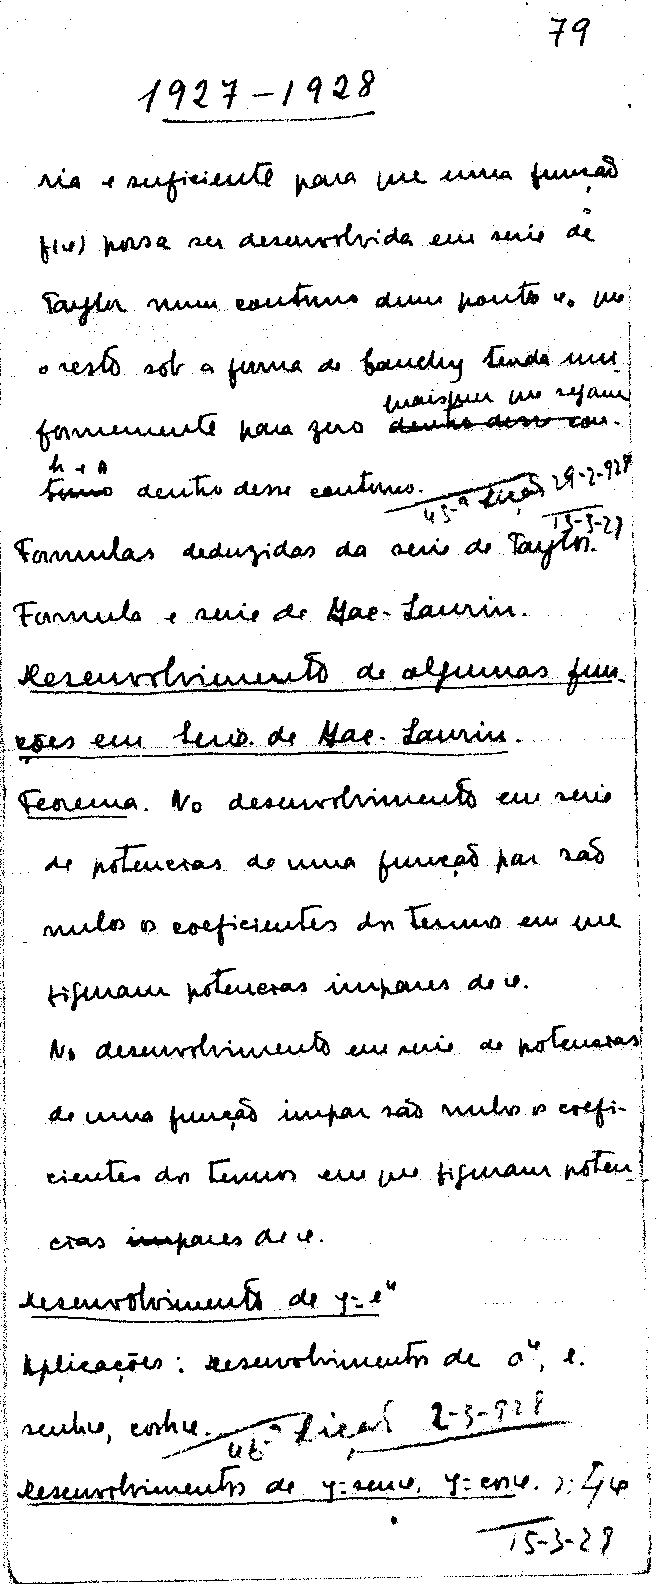 79
1927-1928
ria e suficiente para que uma função
f(x) possa ser desenvolvida em serie de
Taylor num contorno dum ponto x₀ que
o resto sob a forma de Cauchy tenda uni-
formemente para zero ~~dentro desse con-~~ quaisquer que sejam
~~torno~~ h e dentro desse contorno.
45-ª Lição 29-2-928
15-3-28
Formulas deduzidas da serie de Taylor.
Formula e serie de Mac-Laurin.
Desenvolvimento de algumas fun-
ções em Serie de Mac-Laurin.
Teorema. No desenvolvimento em serie
de potencias de uma função par são
nulos os coeficientes dos termos em que
figuram potencias impares de x.
No desenvolvimento em serie de potencias
de uma função impar são nulos os coefi-
cientes dos termos em que figuram poten-
cias ~~im~~pares de x.
Desenvolvimento de y=eˣ
Aplicações: Desenvolvimentos de aˣ, e.
senhx, coshx.
46-ª Lição 2-3-928
Desenvolvimentos de y=senx, y=cosx.
15-3-28